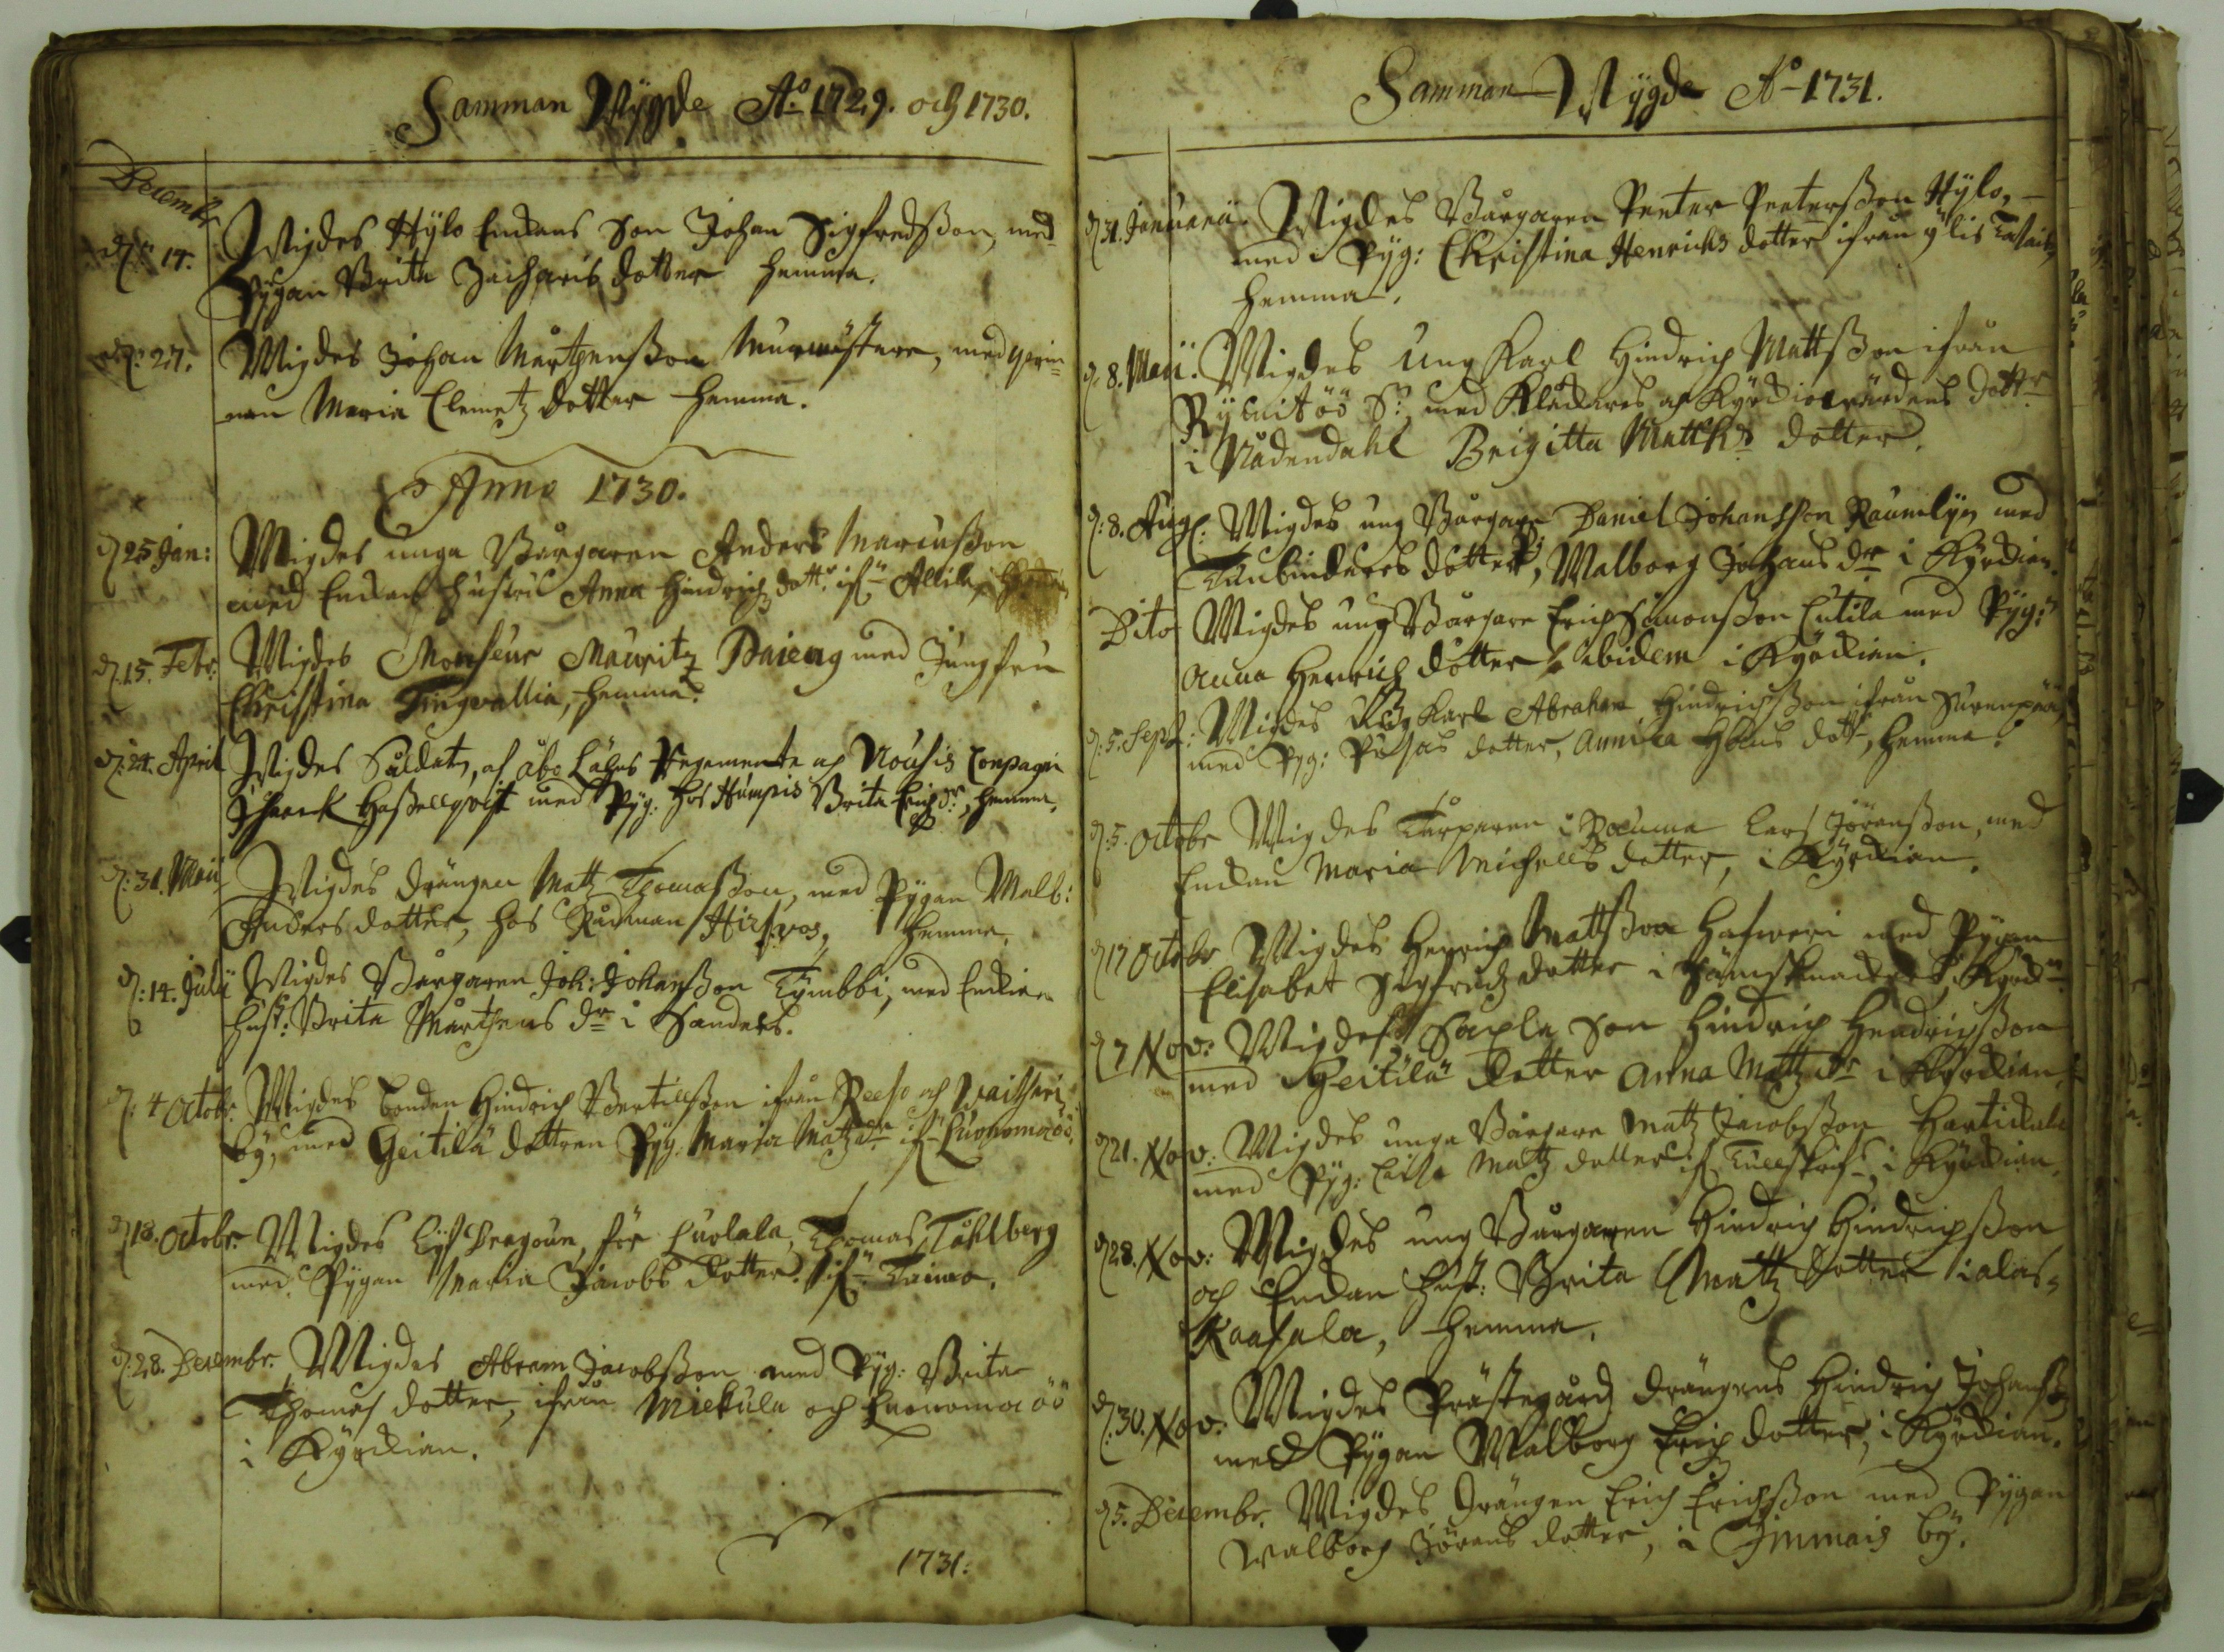 Samman Wÿgde Aº 1729. och 1730.
Decembr
d. 14. Wigdes Hÿlo Enckans Son Johan Sigfredßon, med
Pÿgan Brita Zacharis dotter hemma.
d. 27. Wigdes Johan Mårtzensßon Murmästare, med qwin=
nan Maria Clemetz dotter hemma.
Anno 1730.
d. 25 Jan: Wigdes unga Bårgaren Anders Marcusßon
med Enckan hustru Anna Hindrich dottr. if:n
d. 15. Febr: Wigdes Monseur Mauritz Paieng med Jungfru
Christina Tingvallia, hemma.
d. 24. April Wigdes Såldat, af åbo Lähns Regemente af Nousis Compagni
Hasellqvist med Pÿg. hos Humpis Brita Erichsdr, hemma.
d. 31. Maii Wigdes drängen Matz Thomasßon, med Pÿgan Walb:
Anders dotter, hos Rådman Hirfwos, hemma.
d. 14. Julÿ Wigdes Bårgaren Joh: Johansßon Tÿmbbi, med Enckian
hust: Brita Mårthens dr i Sandels.
d. 4 Octobr. Wigdes bonden Hindrich Bertillsßon ifrån Reso och
bÿ, med Geitilä dottren Pÿg. Maria Matz dr if:n Luonomaöö.
d. 18. Octobr. Wigdes Lif Dragoun för Luolala, Thomas Tåhlberg
med Pÿgan Maria Jacobs dotter. if:n Taimo.
d. 28. Decembr. Wigdes Abram Jacobsßon med Pÿg: Brita
Thomas dotter, ifrån Miekula och Luonomaöö
i Kÿrckian.
1731:
Samman Wÿgde Aº 1731.
d. 31. Januarii. Wigdes Bårgaren Peeter Peetersßon Hÿlo,
med Pÿg: Christina Henrichs dotter ifrån ÿlis
hemma.
d. 8. Maii. Wigdes Ung Karl Hindrich Mattsßon ifrån
Rÿmitöö S: med Klåckares af Kÿrckiowärdens dottr
i Nådendahl Brigitta Matths dotter.
d. 8. Aug: Wigdes ung Bårgare Daniel Johansson Raumlÿn med
Tunbinders dotter, Walborg Johans dr i Kÿrckian.
Dito Wigdes ung Bårgare Erich Simonsßon Cutila med Pÿg:
Anna Henrich dotter ibidem i Kÿrckian.
d. 5. Sept: Wigdes Ung Karl Abraham Hindrichsßon ifrån Surenpää
med Pÿg: dotter, Annika Hans dottr, hemma.
d. 5. Octobr Wigdes Torparen i Rauma Lars Jöransßon, med
Enckan Maria Michells dotter, i Kÿrckian.
d. 17 Octobr Wigdes Henrich Mattsßon med Pÿgan
Elisabet Sigfredz dotter i Kÿrck:n
d. 7 Nov: Wigdes Sapla Son Hindrich Hendrichsßon
med Geitilä dotter Anna Matz dr i Kÿrckian.
d. 21. Nov: Wigdes unga Bårgare Matz Jacobsßon Hartickala
med Pÿg: Lisa Matz dotter i Kÿrckian.
d. 28. Nov: Wigdes ung Bårgaren Hindrich Hindrichsßon
och Enckan hust: Brita Matz dotter i alas=
Kaasala, hemma.
d. 30. Nov: Wigdes Prästegårdz drängens Hindrich Johansß
med Pÿgan Walborg Erich dotter, i Kÿrckian.
d. 5. Decembr. Wigdes drängen Erich Erichsßon med Pÿgan
Walborg Jörans dotter, i Immais bÿ.